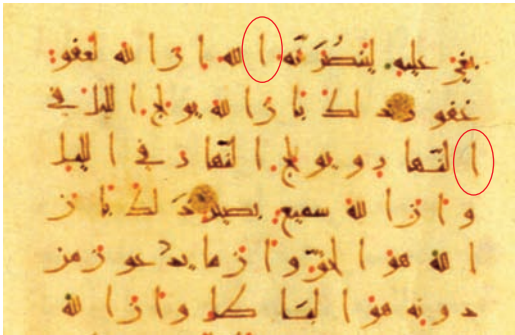 بغي عليه لينصرنه الله ان الله لعفو
غفور ذلك بان الله يولج اليل في
النهار ويولج النهار في اليل
وان الله سميع بصير ذلك بان
الله هو الحق وان ما يدعون من
دونه هو الباطل وان الله